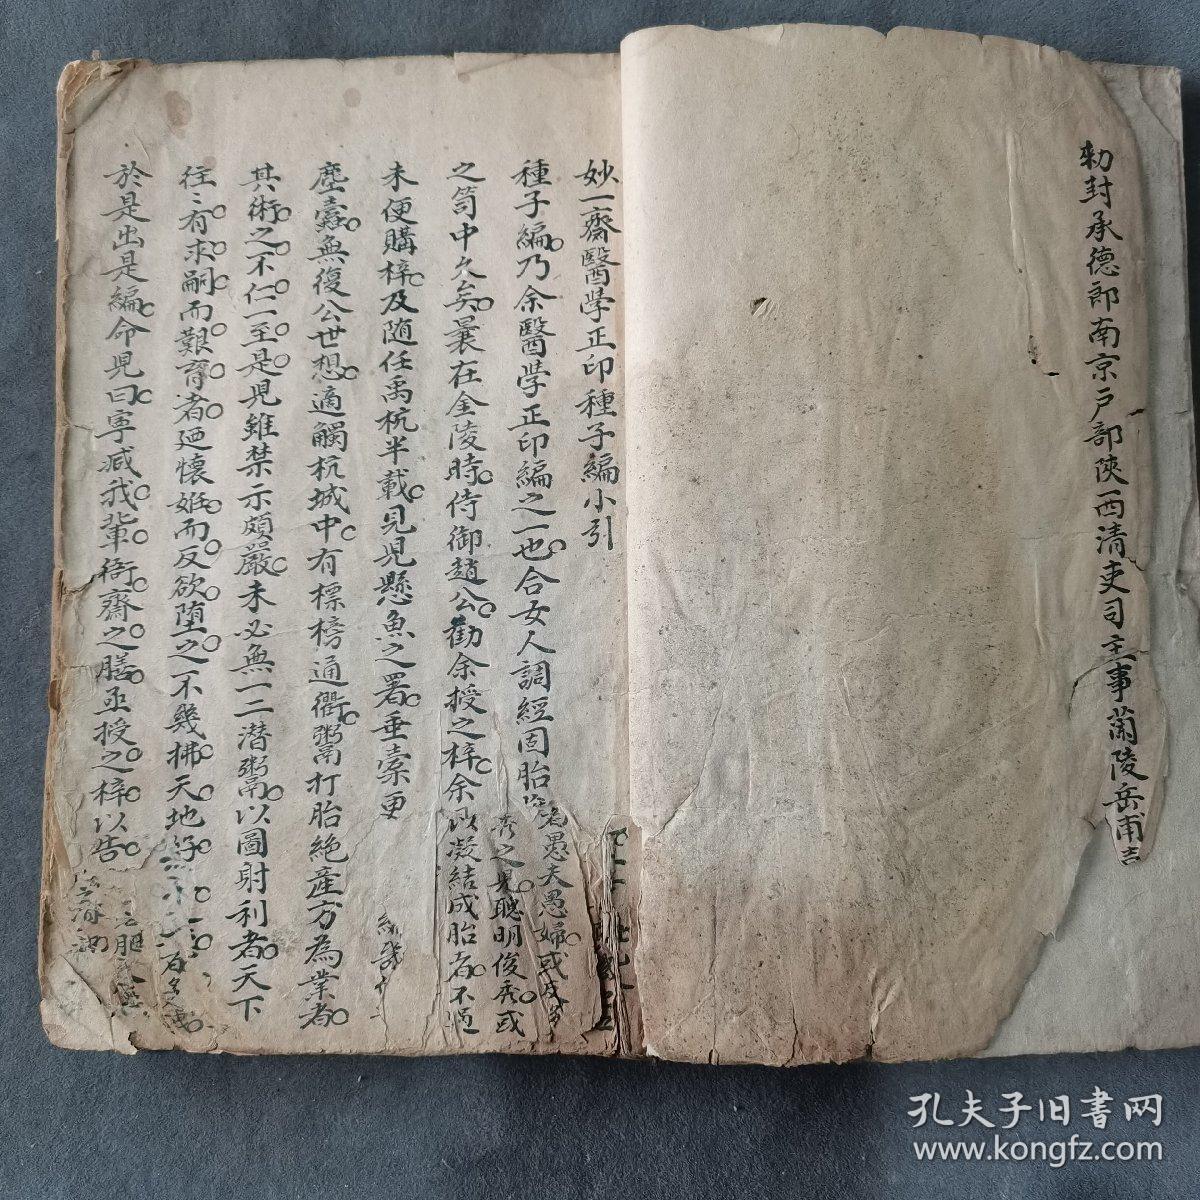 勅封承德郎南京戶部陝西清吏司主事蘭陵岳甫
妙一齋醫學正印種子編小引
種子編乃余醫學正印編之一也合女人調經固胎
之笥中久矣曩在金陵時侍御趙公勸余授之梓余
未便購梓及随任禹杭半載見兒懸魚之署垂橐更
塵蠹無復公世想適觸杭城中有標榜通衢鬻打胎絶產方為業者
其術之不仁一至是兒雖禁示頗嚴未必無一二潛鬻以圖射利者天下
往〻有求嗣而艱育者廼懷姙而反欲墮之不幾拂天地好
於是出是編命兒曰寧减我輩衙齋之膳亟授之梓以告
愚夫愚婦或
之見聰明俊秀或
凝結成胎者不過
孔夫子旧書网
www.kongfz.com